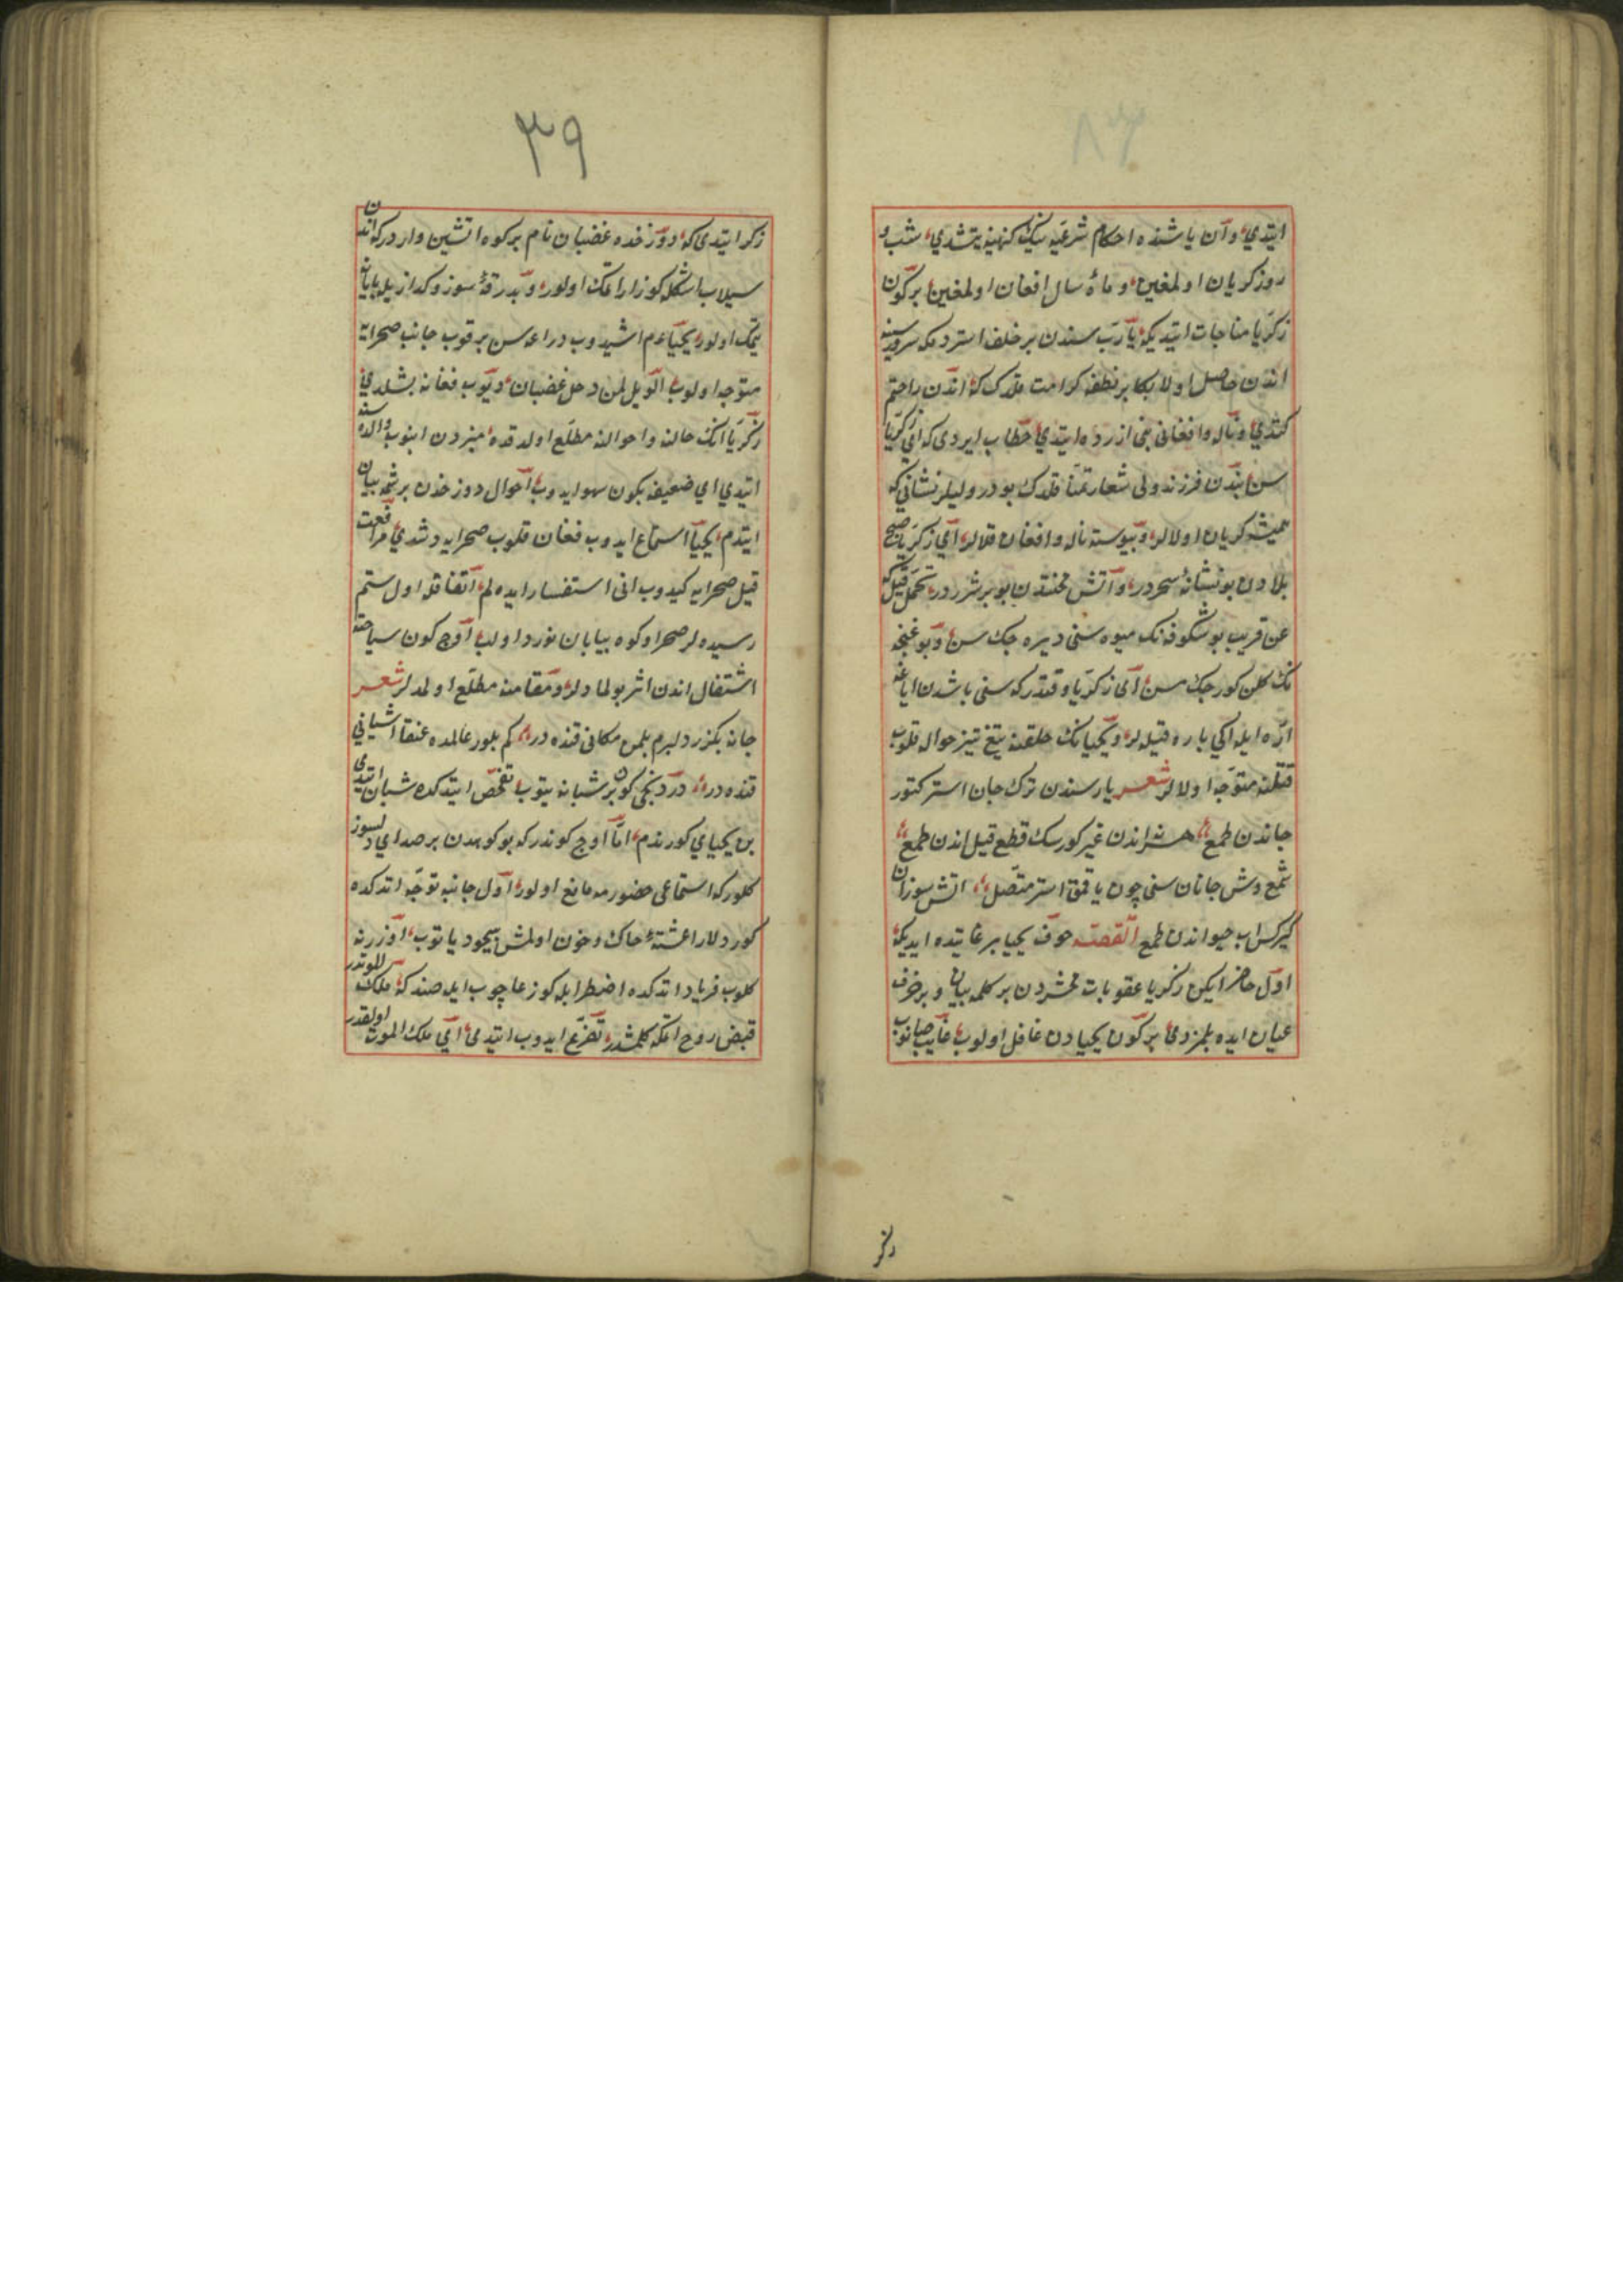 ایتدی وآن یاشنده احکام شرعیه نیک کنهینه یتشدی شب و
روز کریان اولمغین وماه سال افغان اولمغین بر کون
زکریا مناجات ایتدیکه یا رب سندن بر خلف استردمکه سرور سینه
اندن حاصل اولا بکا بر نطفه کرامت قلدک که اندن راحتم
کتدی وناله وافغانی بنی ازرده ایتدی خطاب ایردی که ای زکریا
سن بندن فرزند ولی شعار تمنا قلدک بودر ولیلر نشانی که
همیشه کریان اولالر وپیوسته ناله وافغان قلالر ای زکریا صبح
بلادن بو نشانه سحردر وآتش محنتدن بو بر شرردر تحمل قیل که
عن قریب بو شکوفه نک میوه سنی دیره جک سن وبو غنچه
نک کلن کورجک سن ای زکریا وقتدر که سنی باشدن ایاغه
اره ایله ایکی پاره قیله لر ویحیانک حلقنه تیغ تیز حواله قلوب
قتلنه متوجه اولالر شعر یار سندن ترک جان استر کتور
جاندن طمع هر نه اندن غیر کورسک قطع قیل اندن طمع
شمع وش جانان سنی چون یاقمق استر متصل اتش سوزان
کیرکس اب حیواندن طمع القصه خوف یحیا بر غایتده ایدیکه
اول حاضر ایکن زکریا عقوبات محشردن بر کلمه بیان و بر حرف
عیان ایده بلمزدی بر کون یحیادن غافل اولوب غایب صانوب
زکر
٣٩
ذکر ایتدی که دوزخده غضبان نام بر کوه اتشین واردر که اندن
سیلاب اشکله کوزارا اتمک اولور وبدرقه سوز وکدازیله بایان
یتمک اولور یحیا عم اشیدوب دراعه سن یرقوب جانب صحرایه
متوجه اولوب الویل لمن دخل غضبان دیوب فغانه بشلدی
زکریا انک حالنه واحوالنه مطلع اولدقده منبردن اینوب والده سنه
ایتدی ای ضعیفه بکون سهو ایدوب احوال دوزخدن بر شمه بیان
ایتدم یحیا استماع ایدوب فغان قلوب صحرایه دشدی مرافقت
قیل صحرایه کیدوب انی استفسار ایده لم اتفاقله اول ستم
رسیده لر صحرا وکوه بیابان نورد اولب اوج کون سیاحته
اشتغال اندن اثر بولمادیلر ومقامنه مطلع اولمدلر شعر
جانه بکزر دلبرم بلمن مکانی قنده در کم بلور عالمده عنقا اشیانی
قنده در دردنجی کون بر شبانه یتوب تفحص ایتدکده شبان ایتدی
بن یحیایی کورمدم اما اوج کوندر که بو کوهدن بر صدای دلسوز
کلور که استماعی حضورمه مانع اولور اول جانبه توجه اتدکده
کوردلار اغشته خاک وخون اولمش بیخود یاتوب اوزرنه
کلوب فریاد اتدکده اضطرابله کوز عاچوب ایله صندکه ملک الموتدر
قبض روح اتمکه کلمشدر تضرع ایدوب ایتدی ای ملک الموت اولقدر